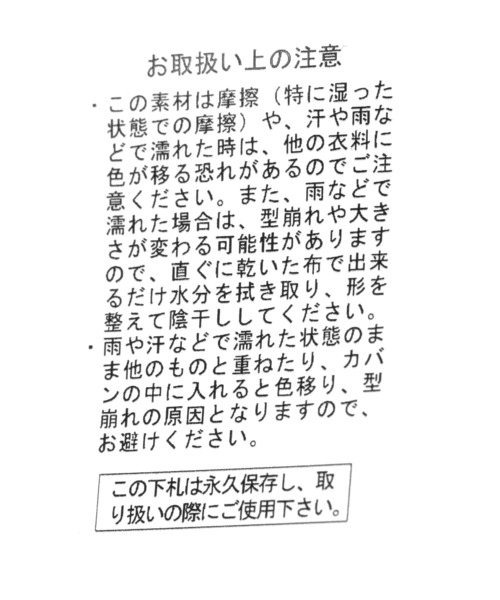 お取扱い上の注意
・この素材は摩擦（特に湿った
状態での摩擦）や、汗や雨な
どで濡れた時は、他の衣料に
色が移る恐れがあるのでご注
意ください。また、雨などで
濡れた場合は、型崩れや大き
さが変わる可能性があります
ので、直ぐに乾いた布で出来
るだけ水分を拭き取り、形を
整えて陰干ししてください。
・雨や汗などで濡れた状態のま
ま他のものと重ねたり、カバ
ンの中に入れると色移り、型
崩れの原因となりますので、
お避けください。
この下札は永久保存し、取
り扱いの際にご使用下さい。